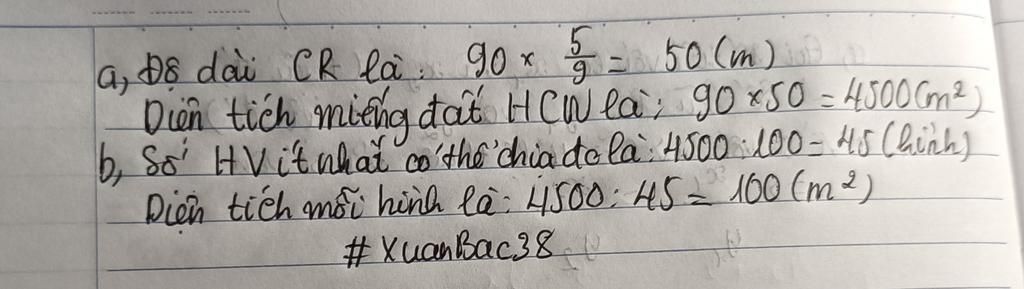 a, Độ dài CR là: 90 × 5/9 = 50 (m)
Diện tích miếng đất HCN là: 90 × 50 = 4500 (m²)
b, Số HV ít nhất có thể chia đc là: 4500 : 100 = 45 (hình)
Diện tích mỗi hình là: 4500 : 45 = 100 (m²)
# XuanBac38